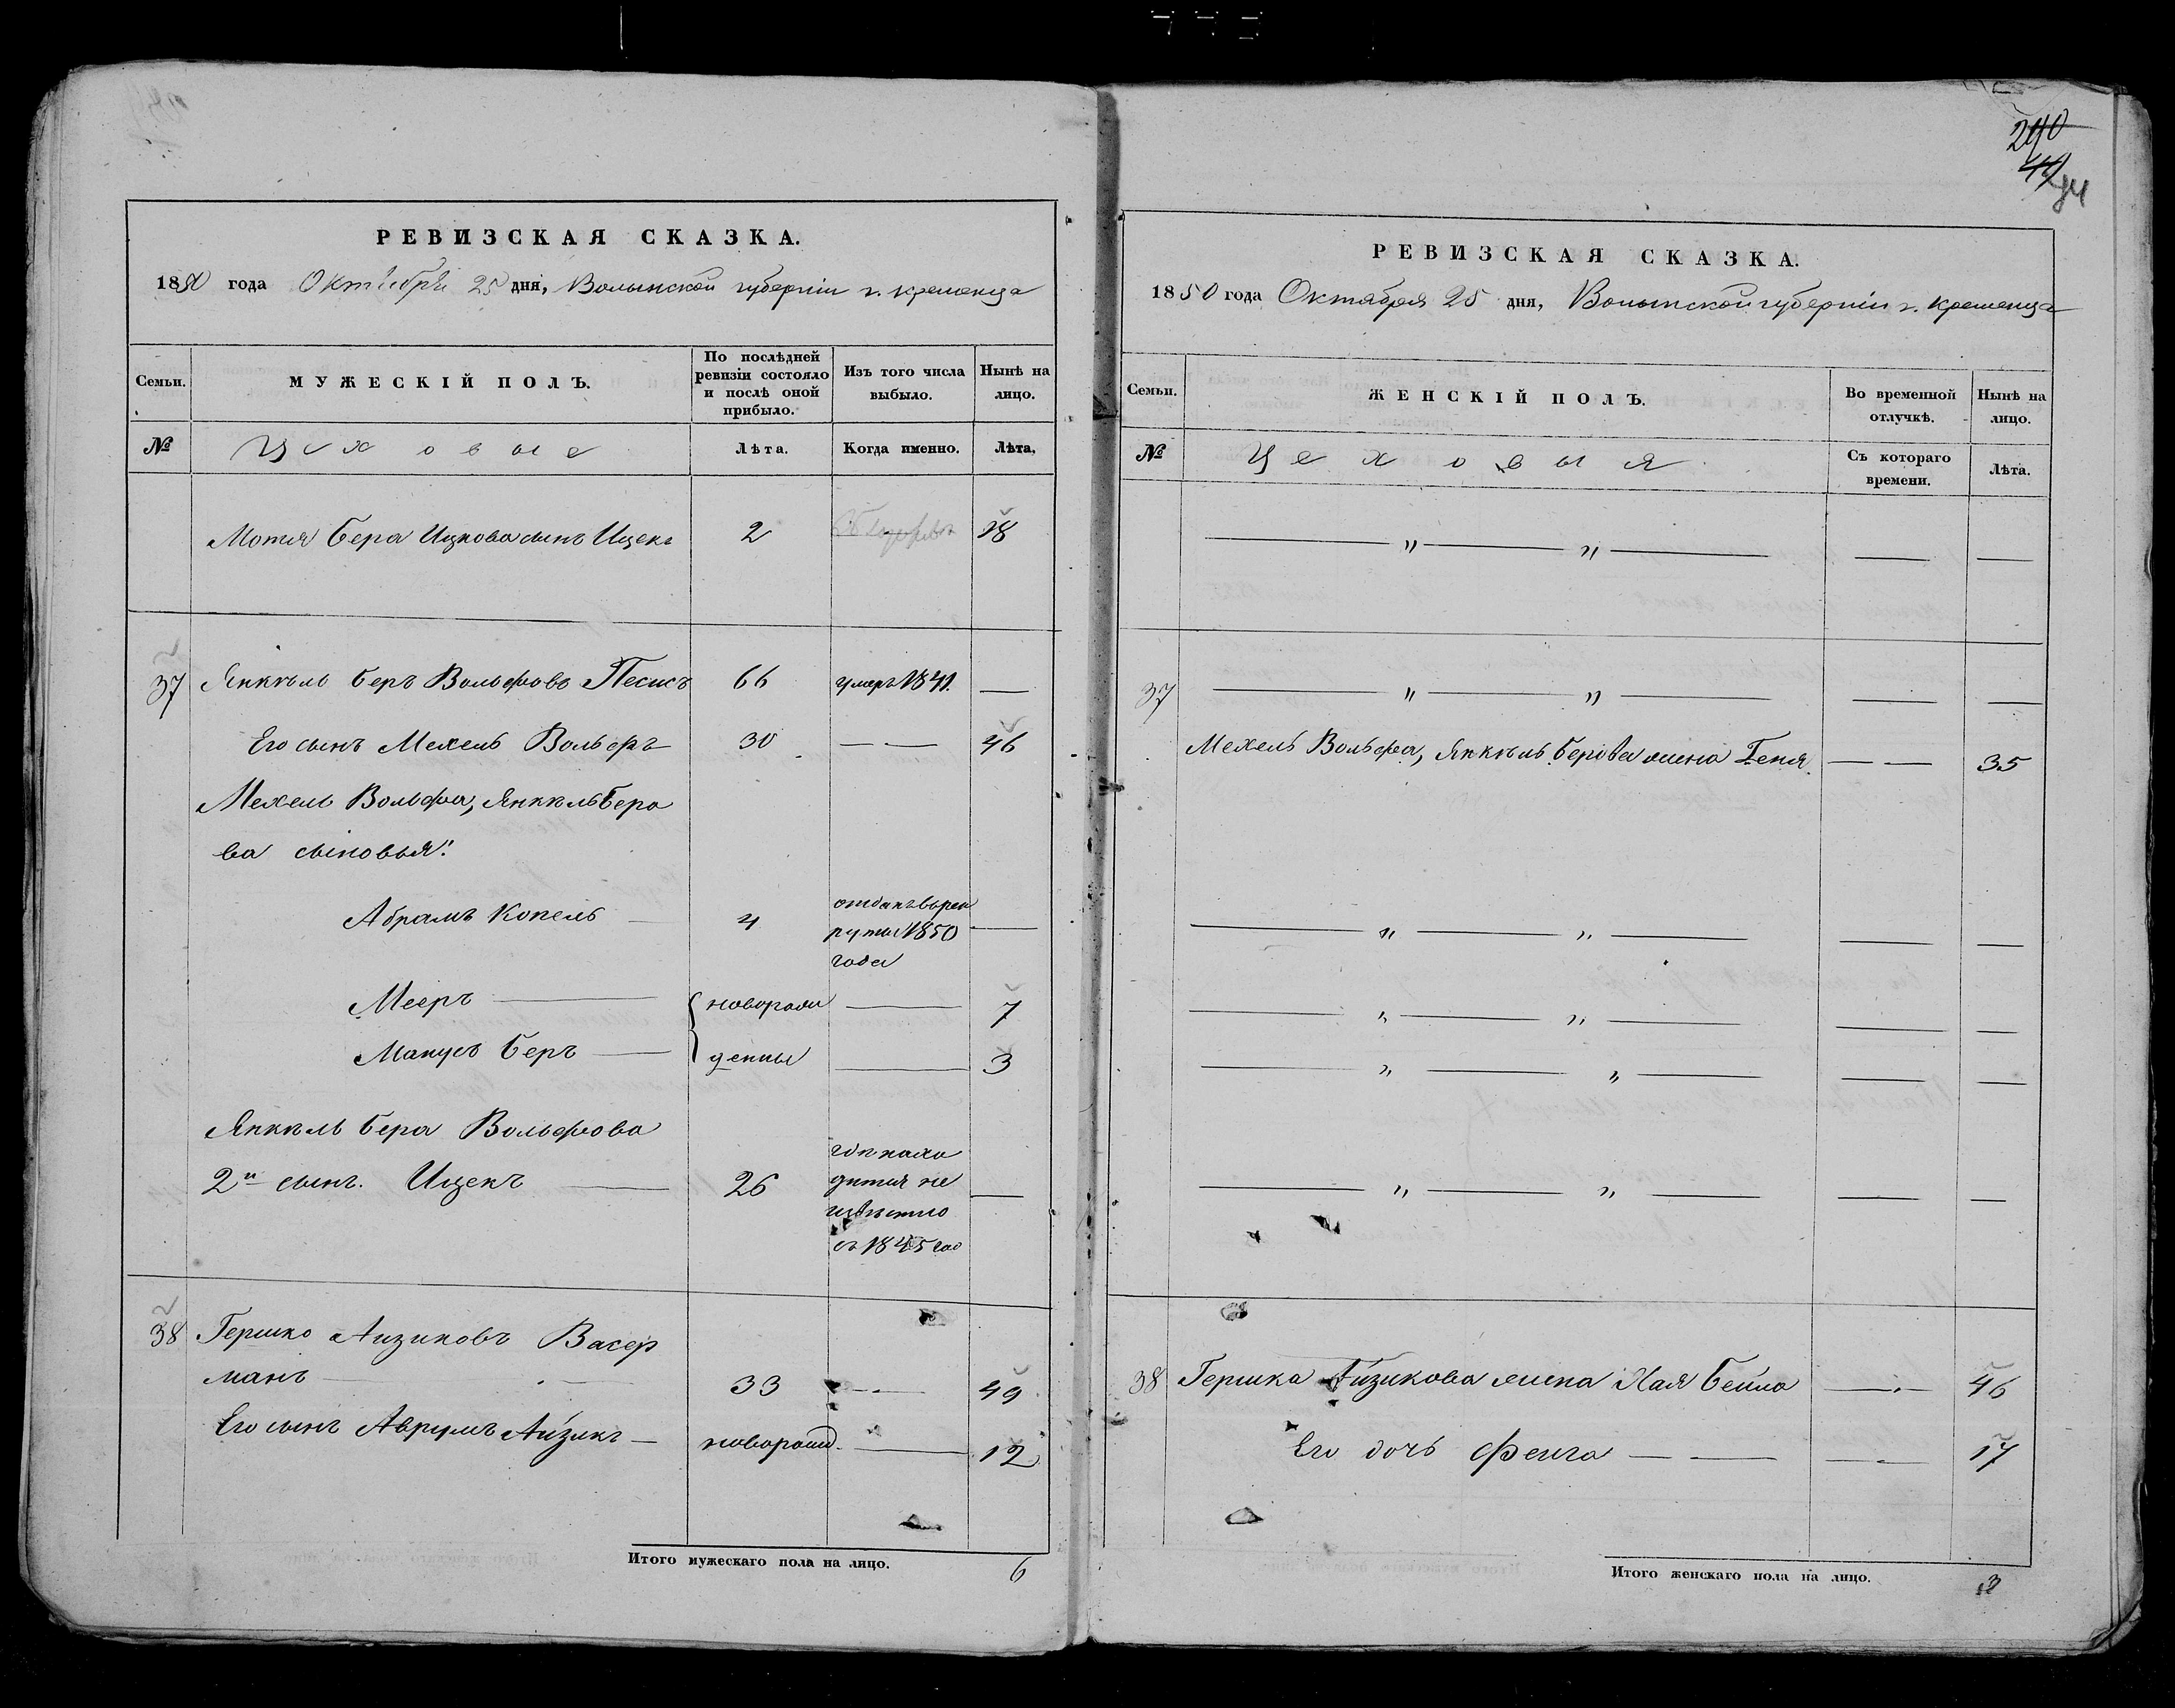 290
44
РЕВИЗСКАЯ СКАЗКА.
1850 года Октября 25 дня, Волынской губерніи г. Кременца
Семьи.
МУЖЕСКІЙ ПОЛЪ.
По послѣдней
ревизіи состояло
и послѣ оной
прибыло.
Изъ того числа
выбыло.
Нынѣ на
лицо.
№
Цеховые
Лѣта.
Когда именно.
Лѣта.
Мотя Бера Ицкова сынъ Ицекъ 2 18
37 Янкель Беръ Вольфовъ Песисъ 66 умеръ 1841. —
Его сынъ Мехель Вольфъ 30 — — 46
Мехель Вольфа, Янкель Беро
ва сыновья:
Абрамъ Копель — 4 отданъ въ рек
руты 1850
года —
Мееръ — новорож — 7
Манусъ Беръ — денны — 3
Янкель Бера Вольфова
2й сынъ. Ицекъ — 26 гдѣ нахо
дится не
извѣстно
съ 1845 года —
38 Гершко Аизиковъ Васер
манъ — 33 — 49
Его сынъ Аврумъ Айзикъ — новорожд. — 12
Итого мужескаго пола на лицо. 6
РЕВИЗСКАЯ СКАЗКА.
1850 года Октября 25 дня, Волынской губерніи г. Кременца
Семьи.
ЖЕНСКІЙ ПОЛЪ.
Во временной
отлучкѣ.
Нынѣ на
лицо.
№
Цеховыя
Съ котораго
времени.
Лѣта.
— „ — „ — — —
37 — „ — „ — — —
Мехель Вольфа, Янкель Берова жена Геня — — 35
— „ — „ — — —
— „ — „ — — —
— „ — „ — — —
— „ — „ — — —
38 Гершка Айзикова жена Хая Бейла — 46
Его дочь Фейга — — — 17
Итого женскаго пола на лицо. 3